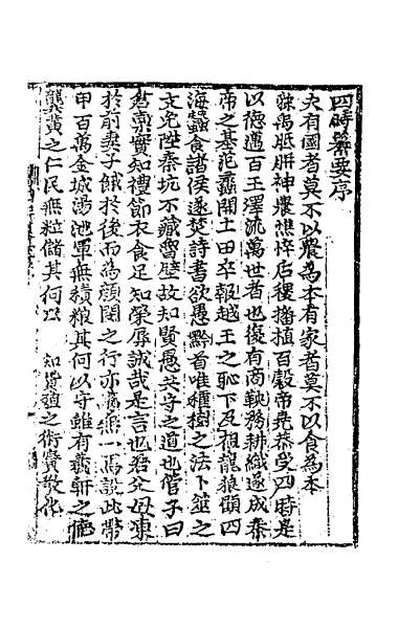 四時纂要序
夫有國者莫不以農為本有家者莫不以食為本
禹胼胝神農憔悴后稷播植百穀帝堯恭受四時是
以德邁百王澤流萬世者也復有商鞅務耕織遂成秦
帝之基范蠡開土田卒報越王之恥下及祖龍狼顧四
海蠶食諸侯遂焚詩書欲愚黔首唯種樹之法卜筮之
文免陞秦坑不藏魯壁故知賢愚共守之道也管子曰
倉禀實知禮節衣食足知榮辱誠哉是言也若父母凍
於前妻子餓於後而為顔閔之行亦無一焉設此帶
甲百萬金城湯池軍無積粮其何以守雖有羲軒之德
龔黃之仁民無粒儲其何以 知貨殖之術實教化